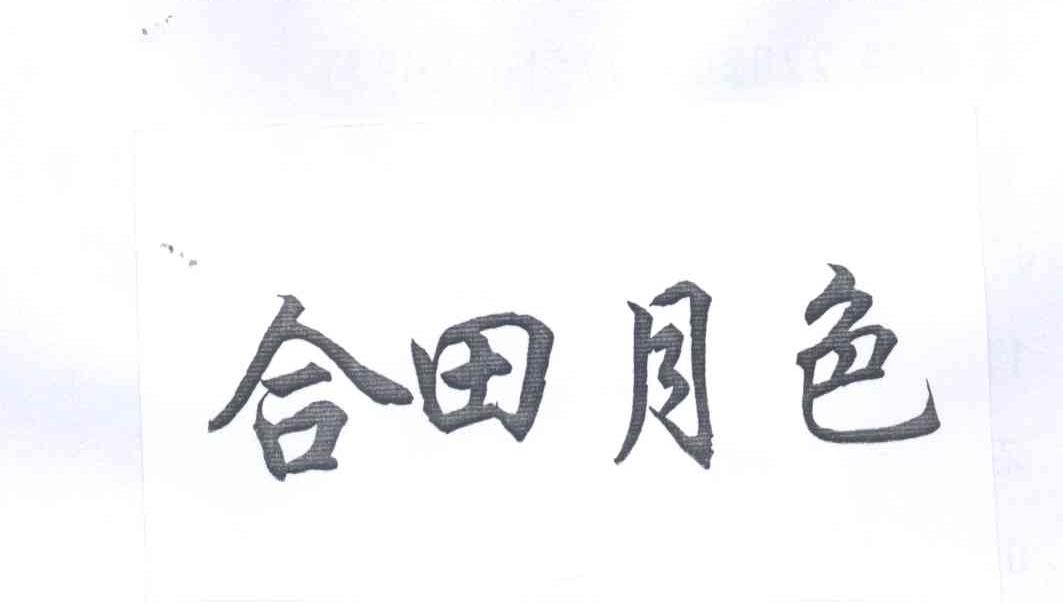 合田月色